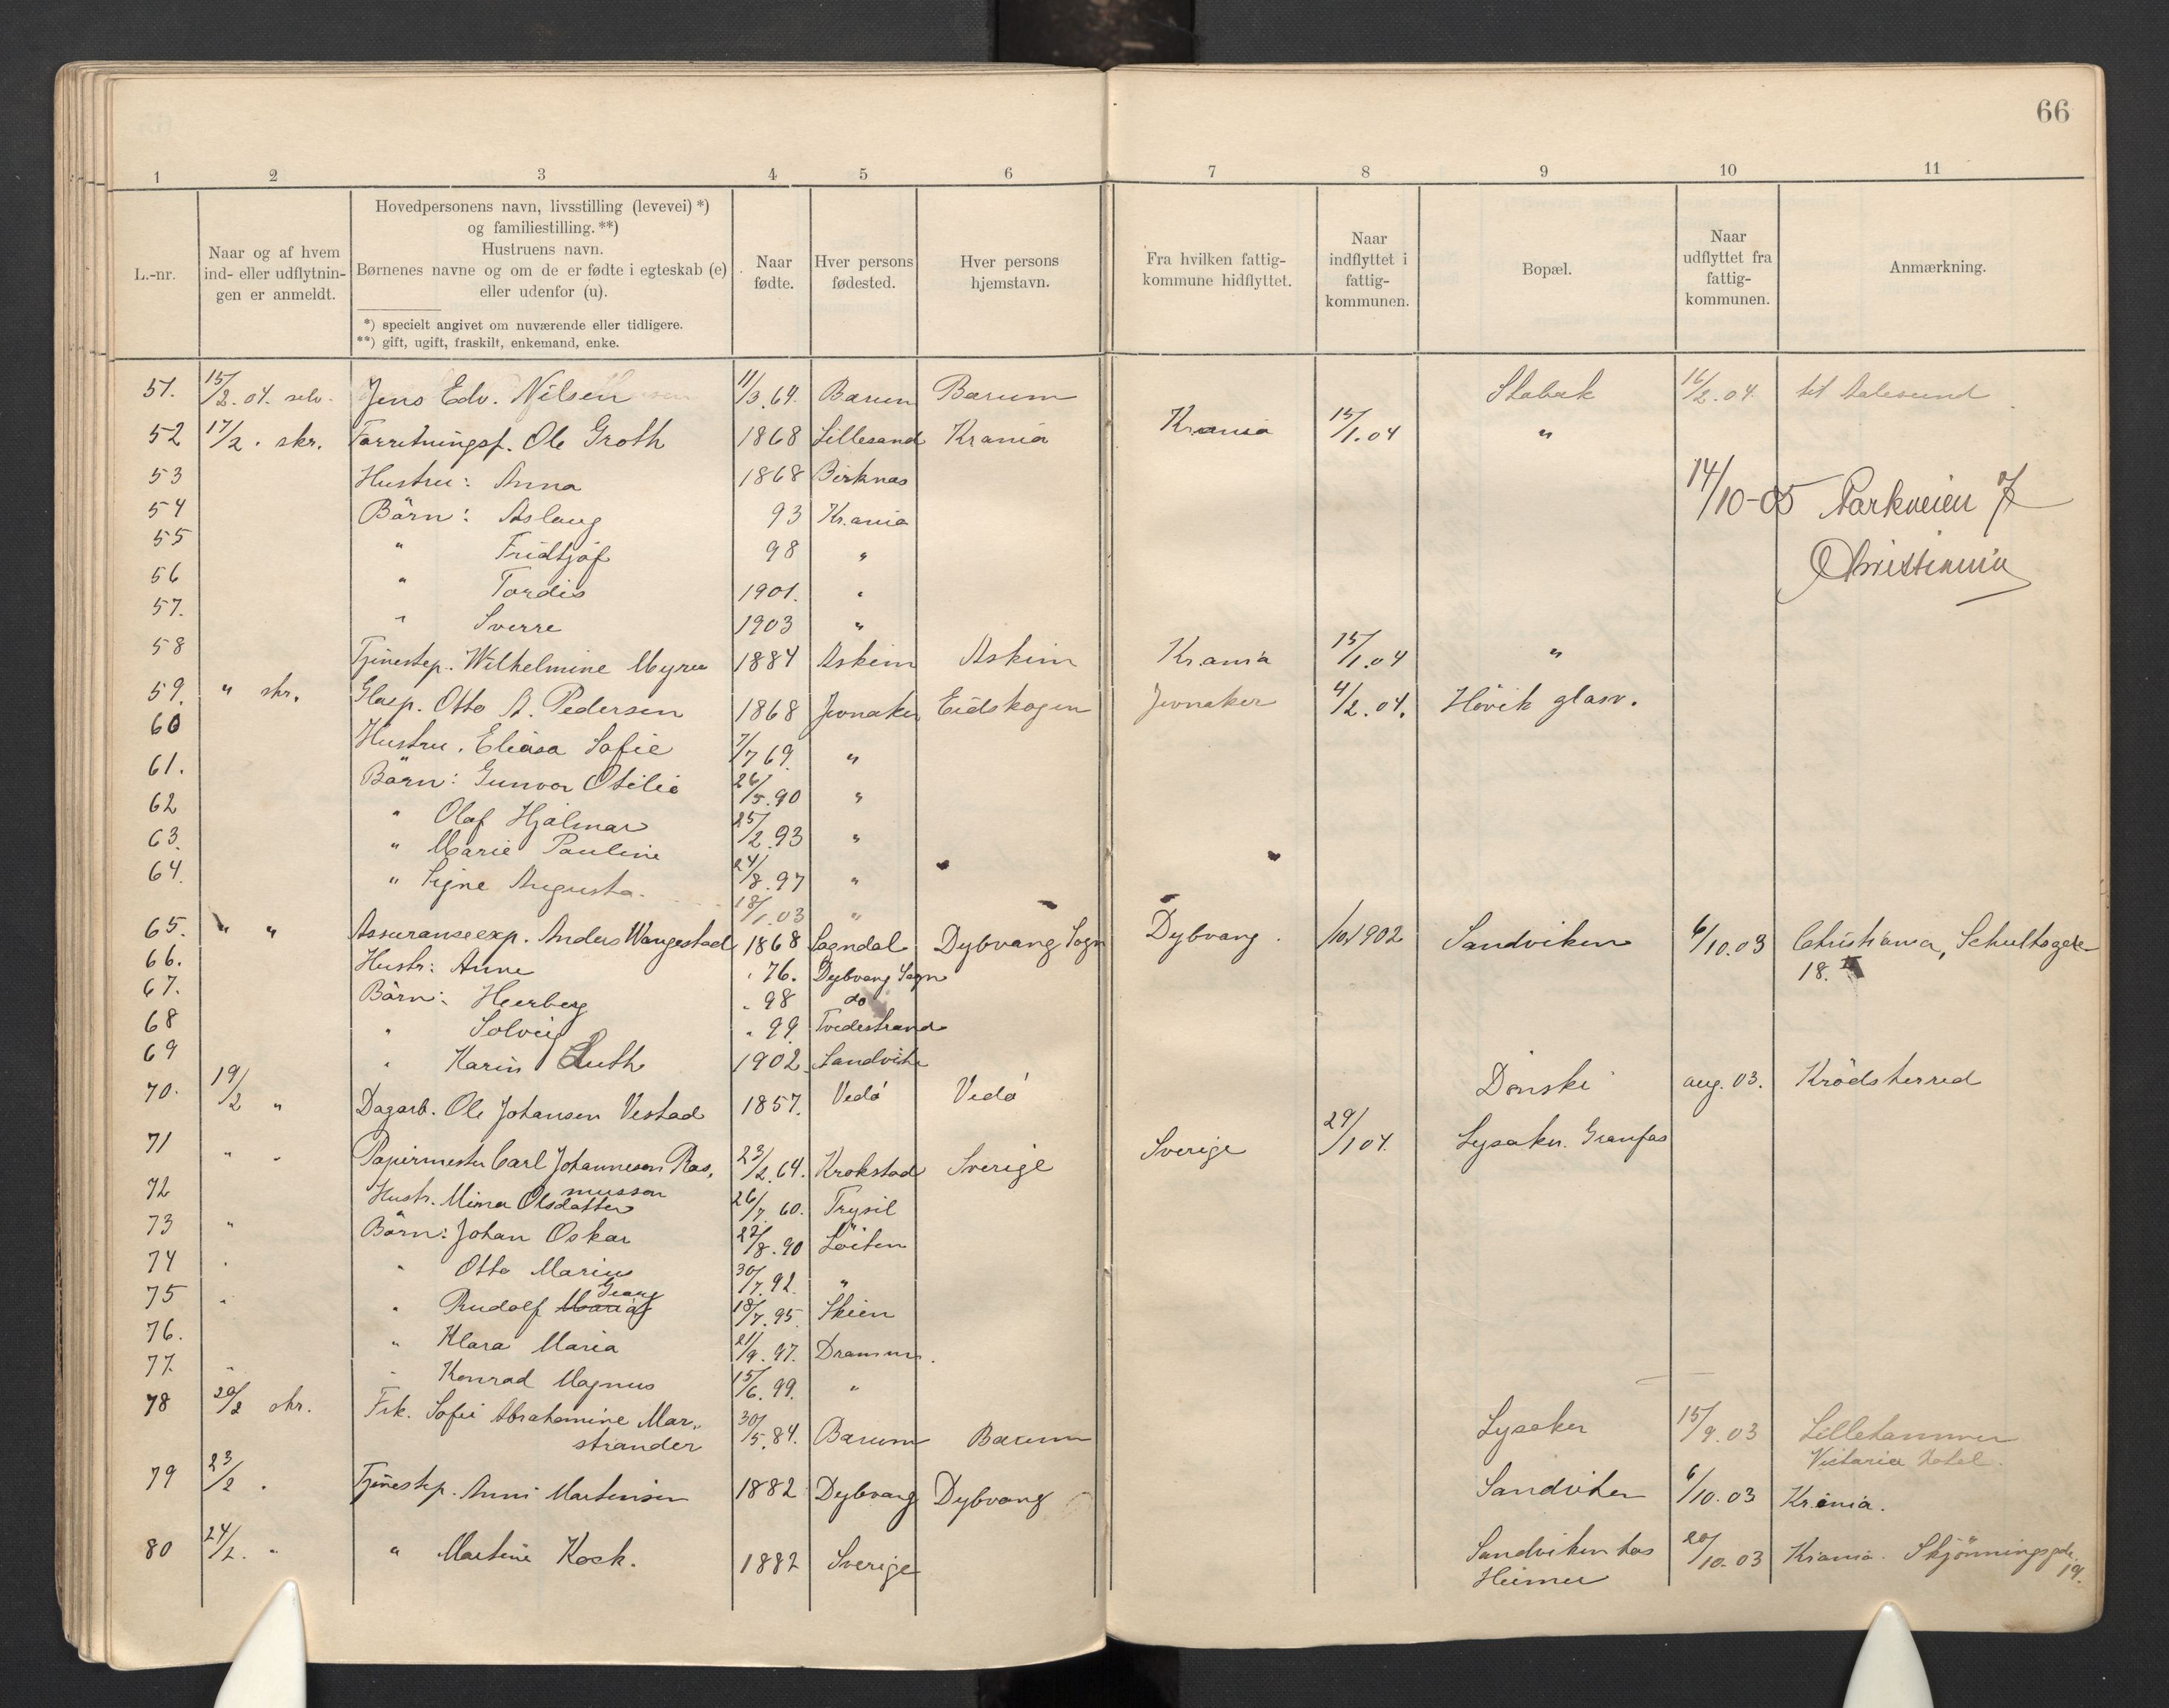 66
1 2 3 4 5 6 7 8 9 10 11
L.-nr.
Naar og af hvem
ind- eller udflytnin-
gen er anmeldt.
Hovedpersonens navn, livsstilling (levevei) *)
og familiestilling. **)
Hustruens navn.
Børnenes navne og om de er fødte i egteskab (e)
eller udenfor (u).
*) specielt angivet om nuværende eller tidligere.
**) gift, ugift, fraskilt, enkemand, enke.
Naar
fødte.
Hver persons
fødested.
Hver persons
hjemstavn.
Fra hvilken fattig-
kommune hidflyttet.
Naar
indflyttet i
fattig-
kommunen.
Bopæl.
Naar
udflyttet fra
fattig-
kommunen.
Anmærkning.
51. 15/2.04. selv. Jens Edv. Nilsen 11/3.64. Bærum Bærum Stabæk 16/2.04. til Aalesund
52 17/2. skr. Forretningsf. Ole Groth 1868 Lillesand Kr.ania Kr.ania 15/1.04 "
53 Hustru: Anna 1868 Birknæs
14/10-05 Parkveien 7
54 Börn: Aslaug 93 Kr.ania
55 " Fridtjof 98 "
Christiania
56 " Tordis 1901. "
57. " Sverre 1903 "
58 Tjenestep. Wilhelmine Myrer 1884 Askim Askim Kr.ania 15/1.04 "
59. " skr. Glasp. Otto A. Pedersen 1868 Jevnaker Eidskogen Jevnaker 4/2.04. Hövik glasv.
60 Hustru. Eliasa Sofie 7/7 69. "
61. Börn: Gunvor Otilie 26/5.90 "
62 " Olaf Hjalmar 25/2.93 "
63. " Marie Pauline 24/8.97 "
64. " Signe Augusta. 18/1.03 "
65. " " Assuranseexp. Anders Wangestad 1868 Sogndal Dybvaag Sogn Dybvaag. /10 1902 Sandviken 6/10.03 Christiania, Schultzgade
18.
66. Hustr: Anne " 76. Dybvaag Sogn
67. Börn: Herberg " 98 do
68 " Solveig " 99. Tvedestrand
69 " Karin Ruth 1902 Sandviken
70. 19/2 " Dagarb. Ole Johansen Vestad 1857. Vedö Vedö Dönski aug. 03. Krödsherred
71 " " Papirmester Carl Johannesen Ras- 23/2.64. Krokstad Sverige Sverige 29/1 04. Lysaker. Granfos
mussen
72 Hustr. Mina Olsdatter 26/7. 60. Trysil
73 " Börn: Johan Oskar 22/8.90 Löiten
74 " " Otto Marius 30/7.92. "
Georg
75 " " Rudolf 18/7.95. Skien
76. " Klara Maria 21/9.97. Drammen.
77. " " Konrad Magnus 15/6.99. "
78 20/2 skr. Frk. Sofie Abrahamine Mar-
strander 30/5.84. Bærum Bærum Lysaker 15/9.03 Lillehammer
Victoria Hotel.
79 23/2 " Tjenestep. Anni Martinsen 1882 Dybvaag Dybvaag Sandviken 6/10.03 Kr.ania.
80 24/2. " " Martine Kock. 1882 Sverige Sandviken hos 20/10.03 Kr.ania. Skjönningsgade
19.
Heimer